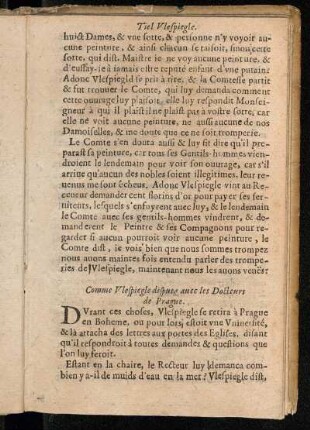 Tiel Vlespiegle.
huict Dames, & vne sotte, & personne n'y voyoit au-
cune peinture, & ainsi chacun se taisoit, sinon cette
sotte, qui dist. Maistre ie ne voy aucune peinture, &
d'eussay-ie à iamais estre reputé enfant d'vne putain:
Adonc Vlespiegle se prit à rire, & la Comtesse partit
& fut trouuer le Comte, qui luy demanda comment
cette ouurage luy plaisoit, elle luy respondit Monsei-
gneur à qui il plaist il ne plaist pas à vostre sotte, car
elle ne voit aucune peinture, ne aussi aucune de nos
Damoiselles, & me doute que ce ne soit tromperie.
Le Comte s'en douta aussi & luy fit dire qu'il pre-
parast sa peinture, car tous ses Gentils-hommes vien-
droient le lendemain pour voir son ouurage, car s'il
arriue qu'aucun des nobles soient illegitimes, leur re-
uenus me sont écheus. Adonc Vlespiegle vint au Re-
ceueur demander cent florins d'or pour payer ses ser-
uiteurs, lesquels s'enfuyrent auec luy, & le lendemain
le Comte auec ses gentils-hommes vindrent, & de-
manderent le Peintre & ses Compagnons pour re-
garder si aucun pourroit voir aucune peinture, le
Comte dist, ie voi bien que nous sommes trompez
nous auons maintes fois entendu parler des trompe-
ries de Vlespiegle, maintenant nous les auons veuës:
Comme Vlespiegle dispute auec les Docteurs
de Prague.
DVrant ces choses, Vlespiegle se retira à Prague
en Boheme, ou pour lors estoit vne Vniuersité,
& là attacha des lettres aux portes des Eglises, disant
qu'il respondroit à toutes demandes & questions que
l'on luy feroit.
Estant en la chaire, le Recteur luy demanca com-
bien y a-il de muids d'eau en la mer? Vlespiegle dist,